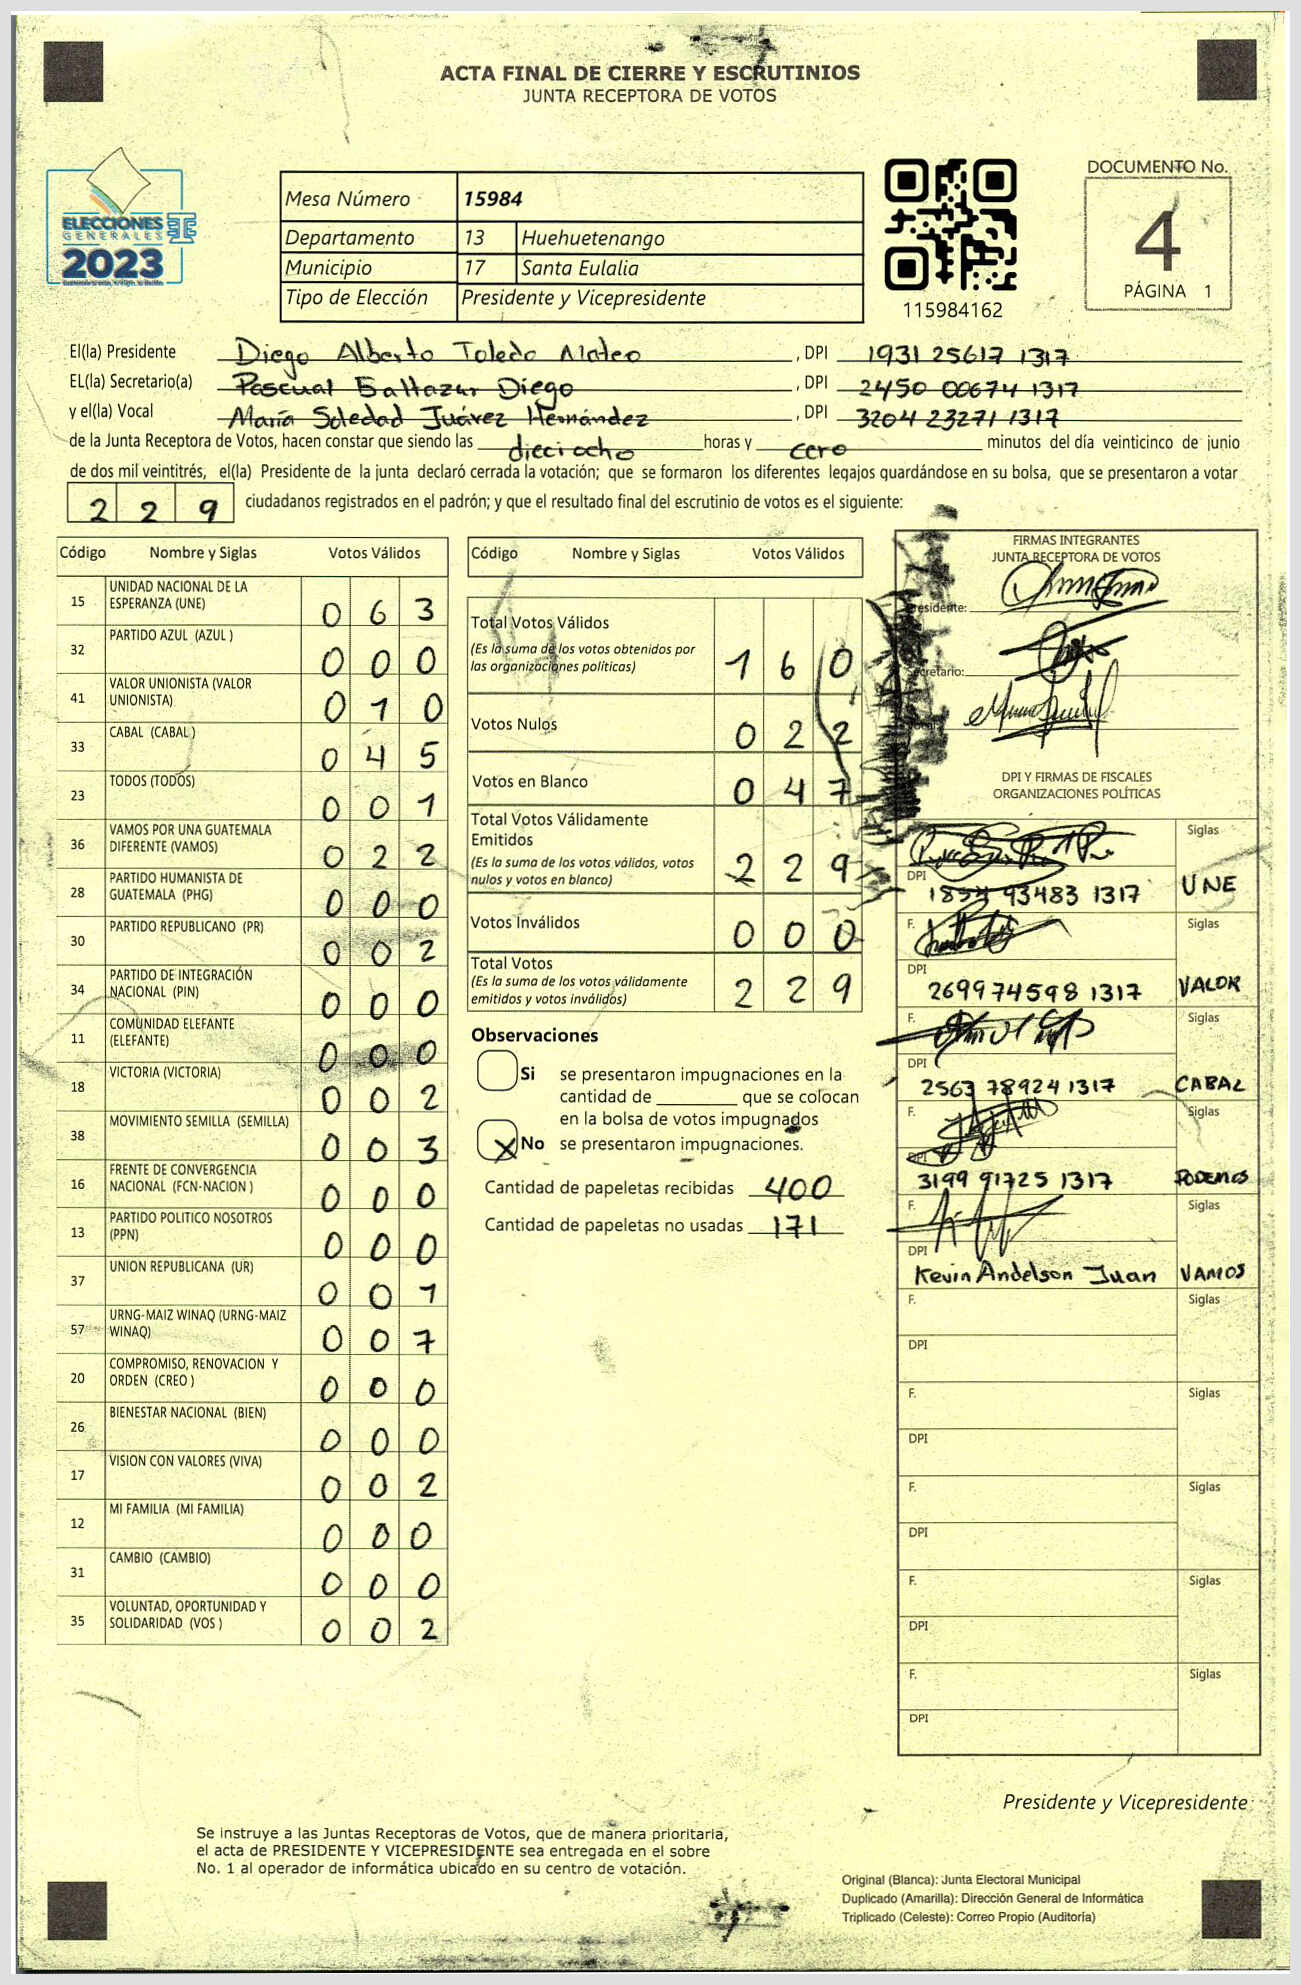 ACTA FINAL DE CIERRE Y ESCRUTINIOS
JUNTA RECEPTORA DE VOTOS
ELECCIONES
GENERALES
2023
Mesa Número 15984
Departamento 13 Huehuetenango
Municipio 17 Santa Eulalia
Tipo de Elección Presidente y Vicepresidente
115984162
DOCUMENTO No.
4
PÁGINA 1
El(la) Presidente Diego Alberto Toledo Mateo, DPI 1931 25617 1317
EL(la) Secretario(a) Pascual Baltazar Diego, DPI 2450 00674 1317
y el(la) Vocal María Soledad Juárez Hernández, DPI 3204 23271 1317
de la Junta Receptora de Votos, hacen constar que siendo las dieciocho horas y cero minutos del día veinticinco de junio
de dos mil veintitrés, el(la) Presidente de la junta declaró cerrada la votación; que se formaron los diferentes legajos guardándose en su bolsa, que se presentaron a votar
229 ciudadanos registrados en el padrón; y que el resultado final del escrutinio de votos es el siguiente:
Código Nombre y Siglas Votos Válidos
15 UNIDAD NACIONAL DE LA ESPERANZA (UNE) 063
32 PARTIDO AZUL (AZUL ) 000
41 VALOR UNIONISTA (VALOR UNIONISTA) 010
33 CABAL (CABAL ) 045
23 TODOS (TODOS) 001
36 VAMOS POR UNA GUATEMALA DIFERENTE (VAMOS) 022
28 PARTIDO HUMANISTA DE GUATEMALA (PHG) 000
30 PARTIDO REPUBLICANO (PR) 002
34 PARTIDO DE INTEGRACIÓN NACIONAL (PIN) 000
11 COMUNIDAD ELEFANTE (ELEFANTE) 000
18 VICTORIA (VICTORIA) 002
38 MOVIMIENTO SEMILLA (SEMILLA) 003
16 FRENTE DE CONVERGENCIA NACIONAL (FCN-NACION ) 000
13 PARTIDO POLITICO NOSOTROS (PPN) 000
37 UNION REPUBLICANA (UR) 001
57 URNG-MAIZ WINAQ (URNG-MAIZ WINAQ) 007
20 COMPROMISO, RENOVACION Y ORDEN (CREO ) 000
26 BIENESTAR NACIONAL (BIEN) 000
17 VISION CON VALORES (VIVA) 002
12 MI FAMILIA (MI FAMILIA) 000
31 CAMBIO (CAMBIO) 000
35 VOLUNTAD, OPORTUNIDAD Y SOLIDARIDAD (VOS ) 002
Código Nombre y Siglas Votos Válidos
Total Votos Válidos
(Es la suma de los votos obtenidos por
las organizaciones políticas) 160
Votos Nulos 022
Votos en Blanco 047
Total Votos Válidamente
Emitidos
(Es la suma de los votos válidos, votos
nulos y votos en blanco) 229
Votos Inválidos 000
Total Votos
(Es la suma de los votos válidamente
emitidos y votos inválidos) 229
Observaciones
Si se presentaron impugnaciones en la
cantidad de ________ que se colocan
en la bolsa de votos impugnados
X No se presentaron impugnaciones.
Cantidad de papeletas recibidas 400
Cantidad de papeletas no usadas 171
FIRMAS INTEGRANTES
JUNTA RECEPTORA DE VOTOS
Presidente:
Secretario:
DPI Y FIRMAS DE FISCALES
ORGANIZACIONES POLÍTICAS
Siglas
DPI
93483 1317 UNE
F. Siglas
DPI
2699 74598 1317 VALOR
F. Siglas
DPI
2563 78924 1317 CABAL
F. Siglas
DPI
3199 91725 1317 PODEMOS
F. Siglas
DPI
Kevin Andelson Juan VAMOS
F. Siglas
DPI
F. Siglas
DPI
F. Siglas
DPI
F. Siglas
DPI
F. Siglas
DPI
Presidente y Vicepresidente
Se instruye a las Juntas Receptoras de Votos, que de manera prioritaria,
el acta de PRESIDENTE Y VICEPRESIDENTE sea entregada en el sobre
No. 1 al operador de informática ubicado en su centro de votación.
Original (Blanca): Junta Electoral Municipal
Duplicado (Amarilla): Dirección General de Informática
Triplicado (Celeste): Correo Propio (Auditoría)